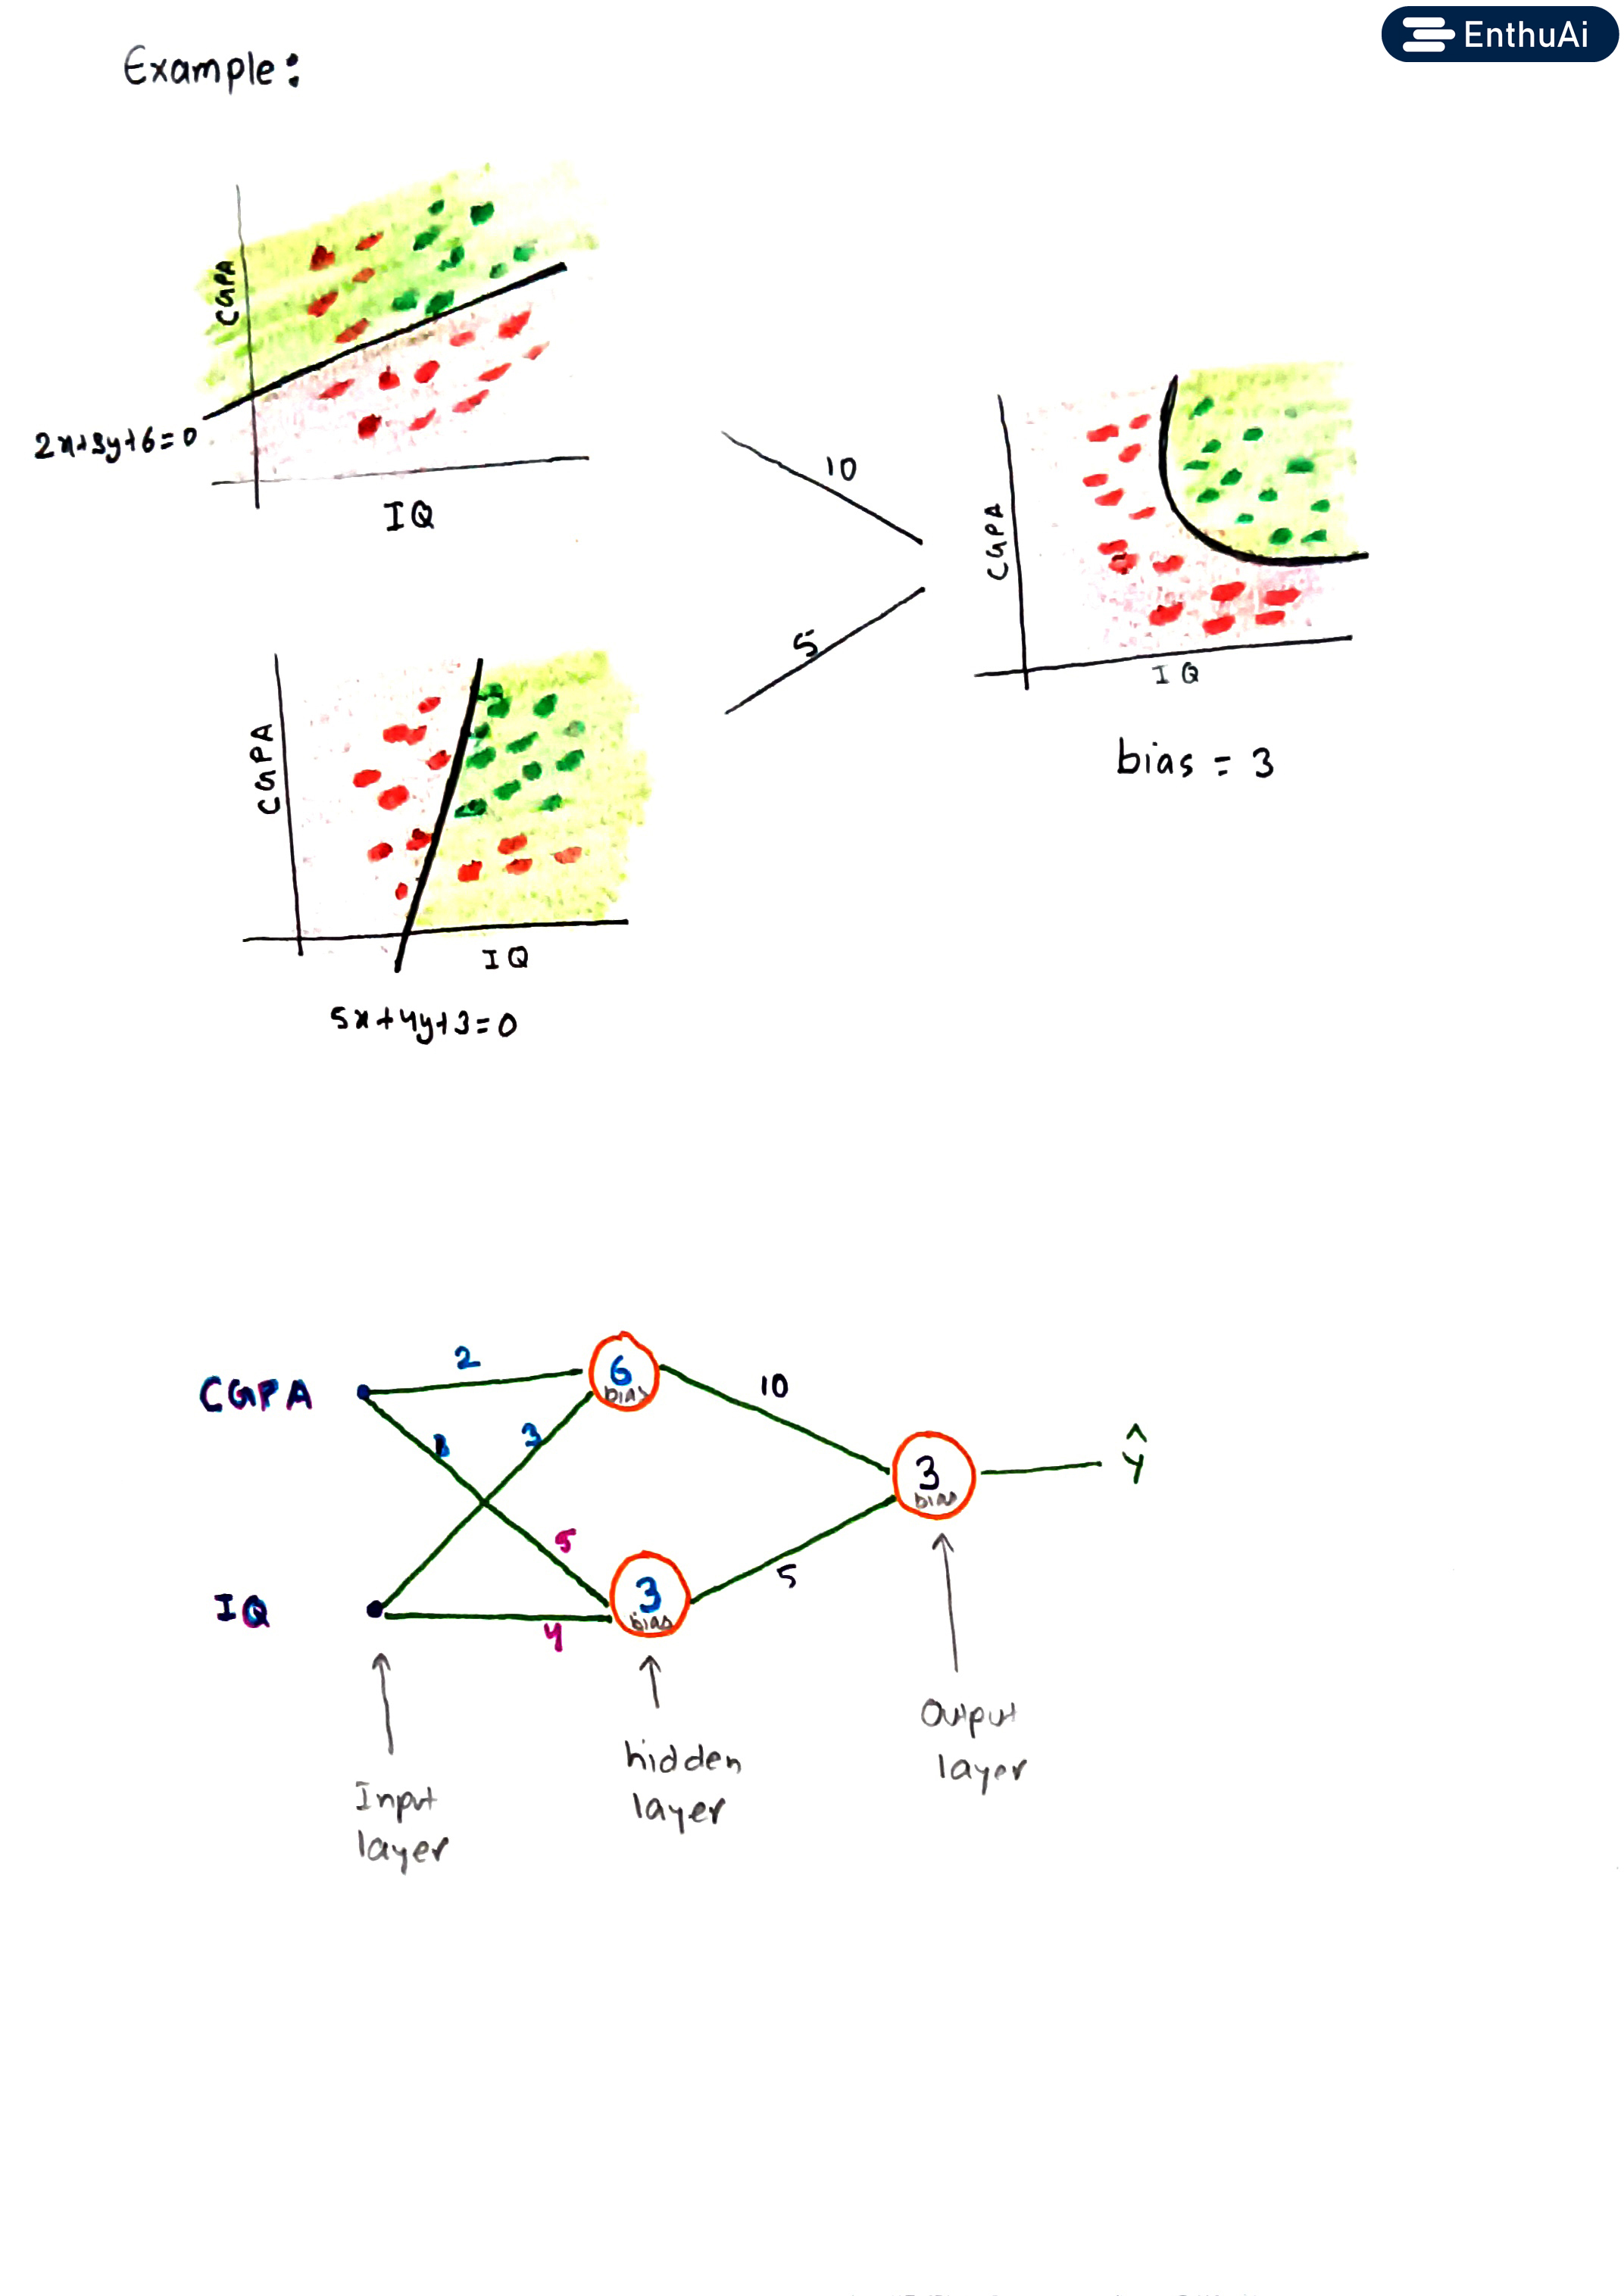 EnthuAi
Example:
CGPA
2x+3y+6=0
IQ
10
CGPA
IQ
bias = 3
5
CGPA
IQ
5x+4y+3=0
CGPA
2
6
bias
10
3
3
bias
ŷ
5
IQ
4
3
bias
5
Input
layer
hidden
layer
Output
layer